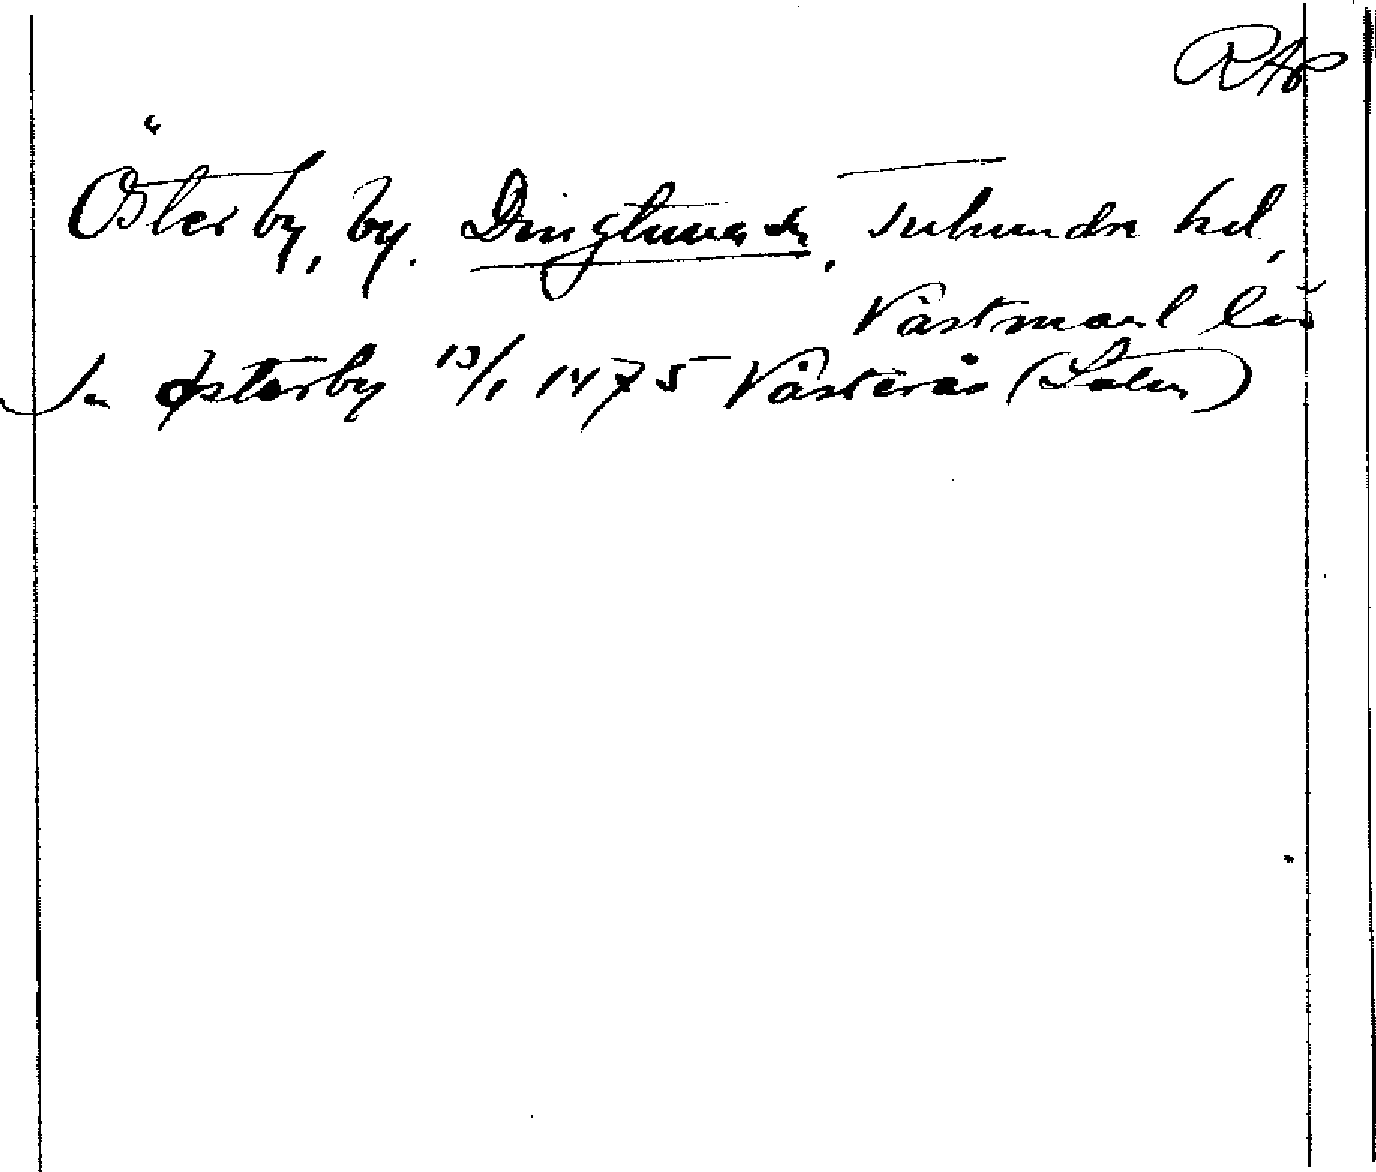 RAp
Österby, by. Dingtuna sn, Tuhundra hd,
Västmanl län
In østerby 13/1 1475 Västerås (Latin)